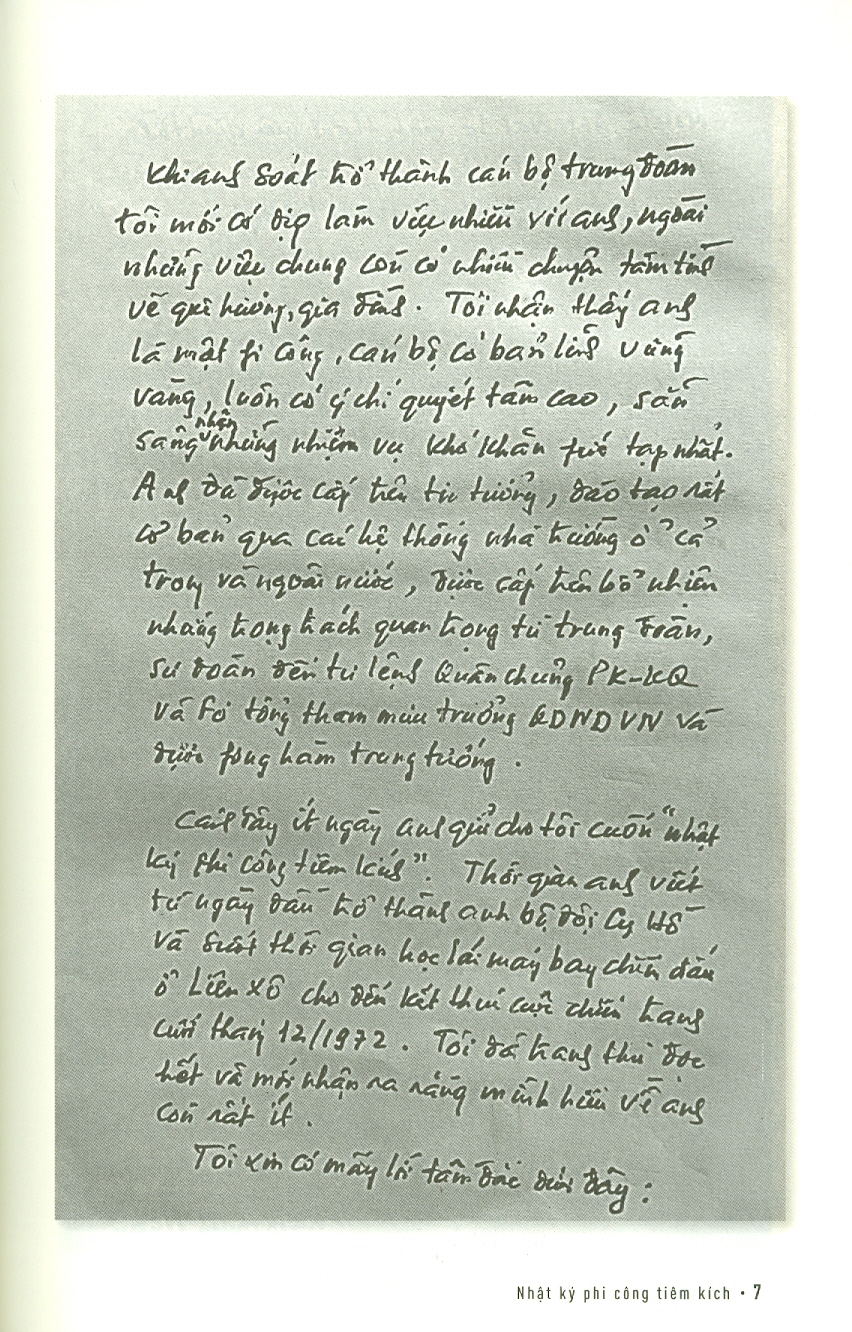 Khi anh Soát trở thành cán bộ trung đoàn
tôi mới có dịp làm việc nhiều với anh, ngoài
những việc chung còn có nhiều chuyện tâm tình
về quê hương, gia đình. Tôi nhận thấy anh
là một fi công, cán bộ có bản lĩnh vững
vàng, luôn có ý chí quyết tâm cao, sẵn
sàng nhận những nhiệm vụ khó khăn fức tạp nhất.
Anh đã được cấp trên tin tưởng, đào tạo rất
cơ bản qua các hệ thống nhà trường ở cả
trong và ngoài nước, được cấp trên bổ nhiệm
những trọng trách quan trọng từ trung đoàn,
sư đoàn đến tư lệnh Quân chủng PK-KQ
và Fó tổng tham mưu trưởng QDNDVN và
được fong hàm trung tướng.
Cách đây ít ngày anh gửi cho tôi cuốn "nhật
ký phi công tiêm kích". Thời gian anh viết
từ ngày đầu trở thành anh bộ đội Cụ Hồ
và suốt thời gian học lái máy bay chiến đấu
ở Liên Xô cho đến kết thúc cuộc chiến tranh
cuối tháng 12/1972. Tôi đã tranh thủ đọc
hết và mới nhận ra rằng mình hiểu về anh
còn rất ít.
Tôi xin có mấy lời tâm đắc dưới đây:
Nhật ký phi công tiêm kích • 7